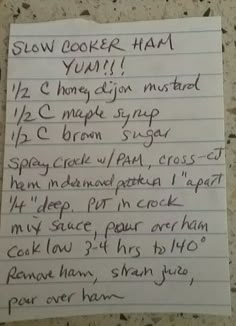 SLOW COOKER HAM
YUM!!!
1/2 C honey dijon mustard
1/2 C maple syrup
1/2 C brown sugar
Spray crock w/ PAM, cross-cut
ham in diamond pattern 1" apart
1/4" deep. PUT in crock
mix sauce, pour over ham
Cook low 3-4 hrs to 140°
Remove ham, strain juice,
pour over ham